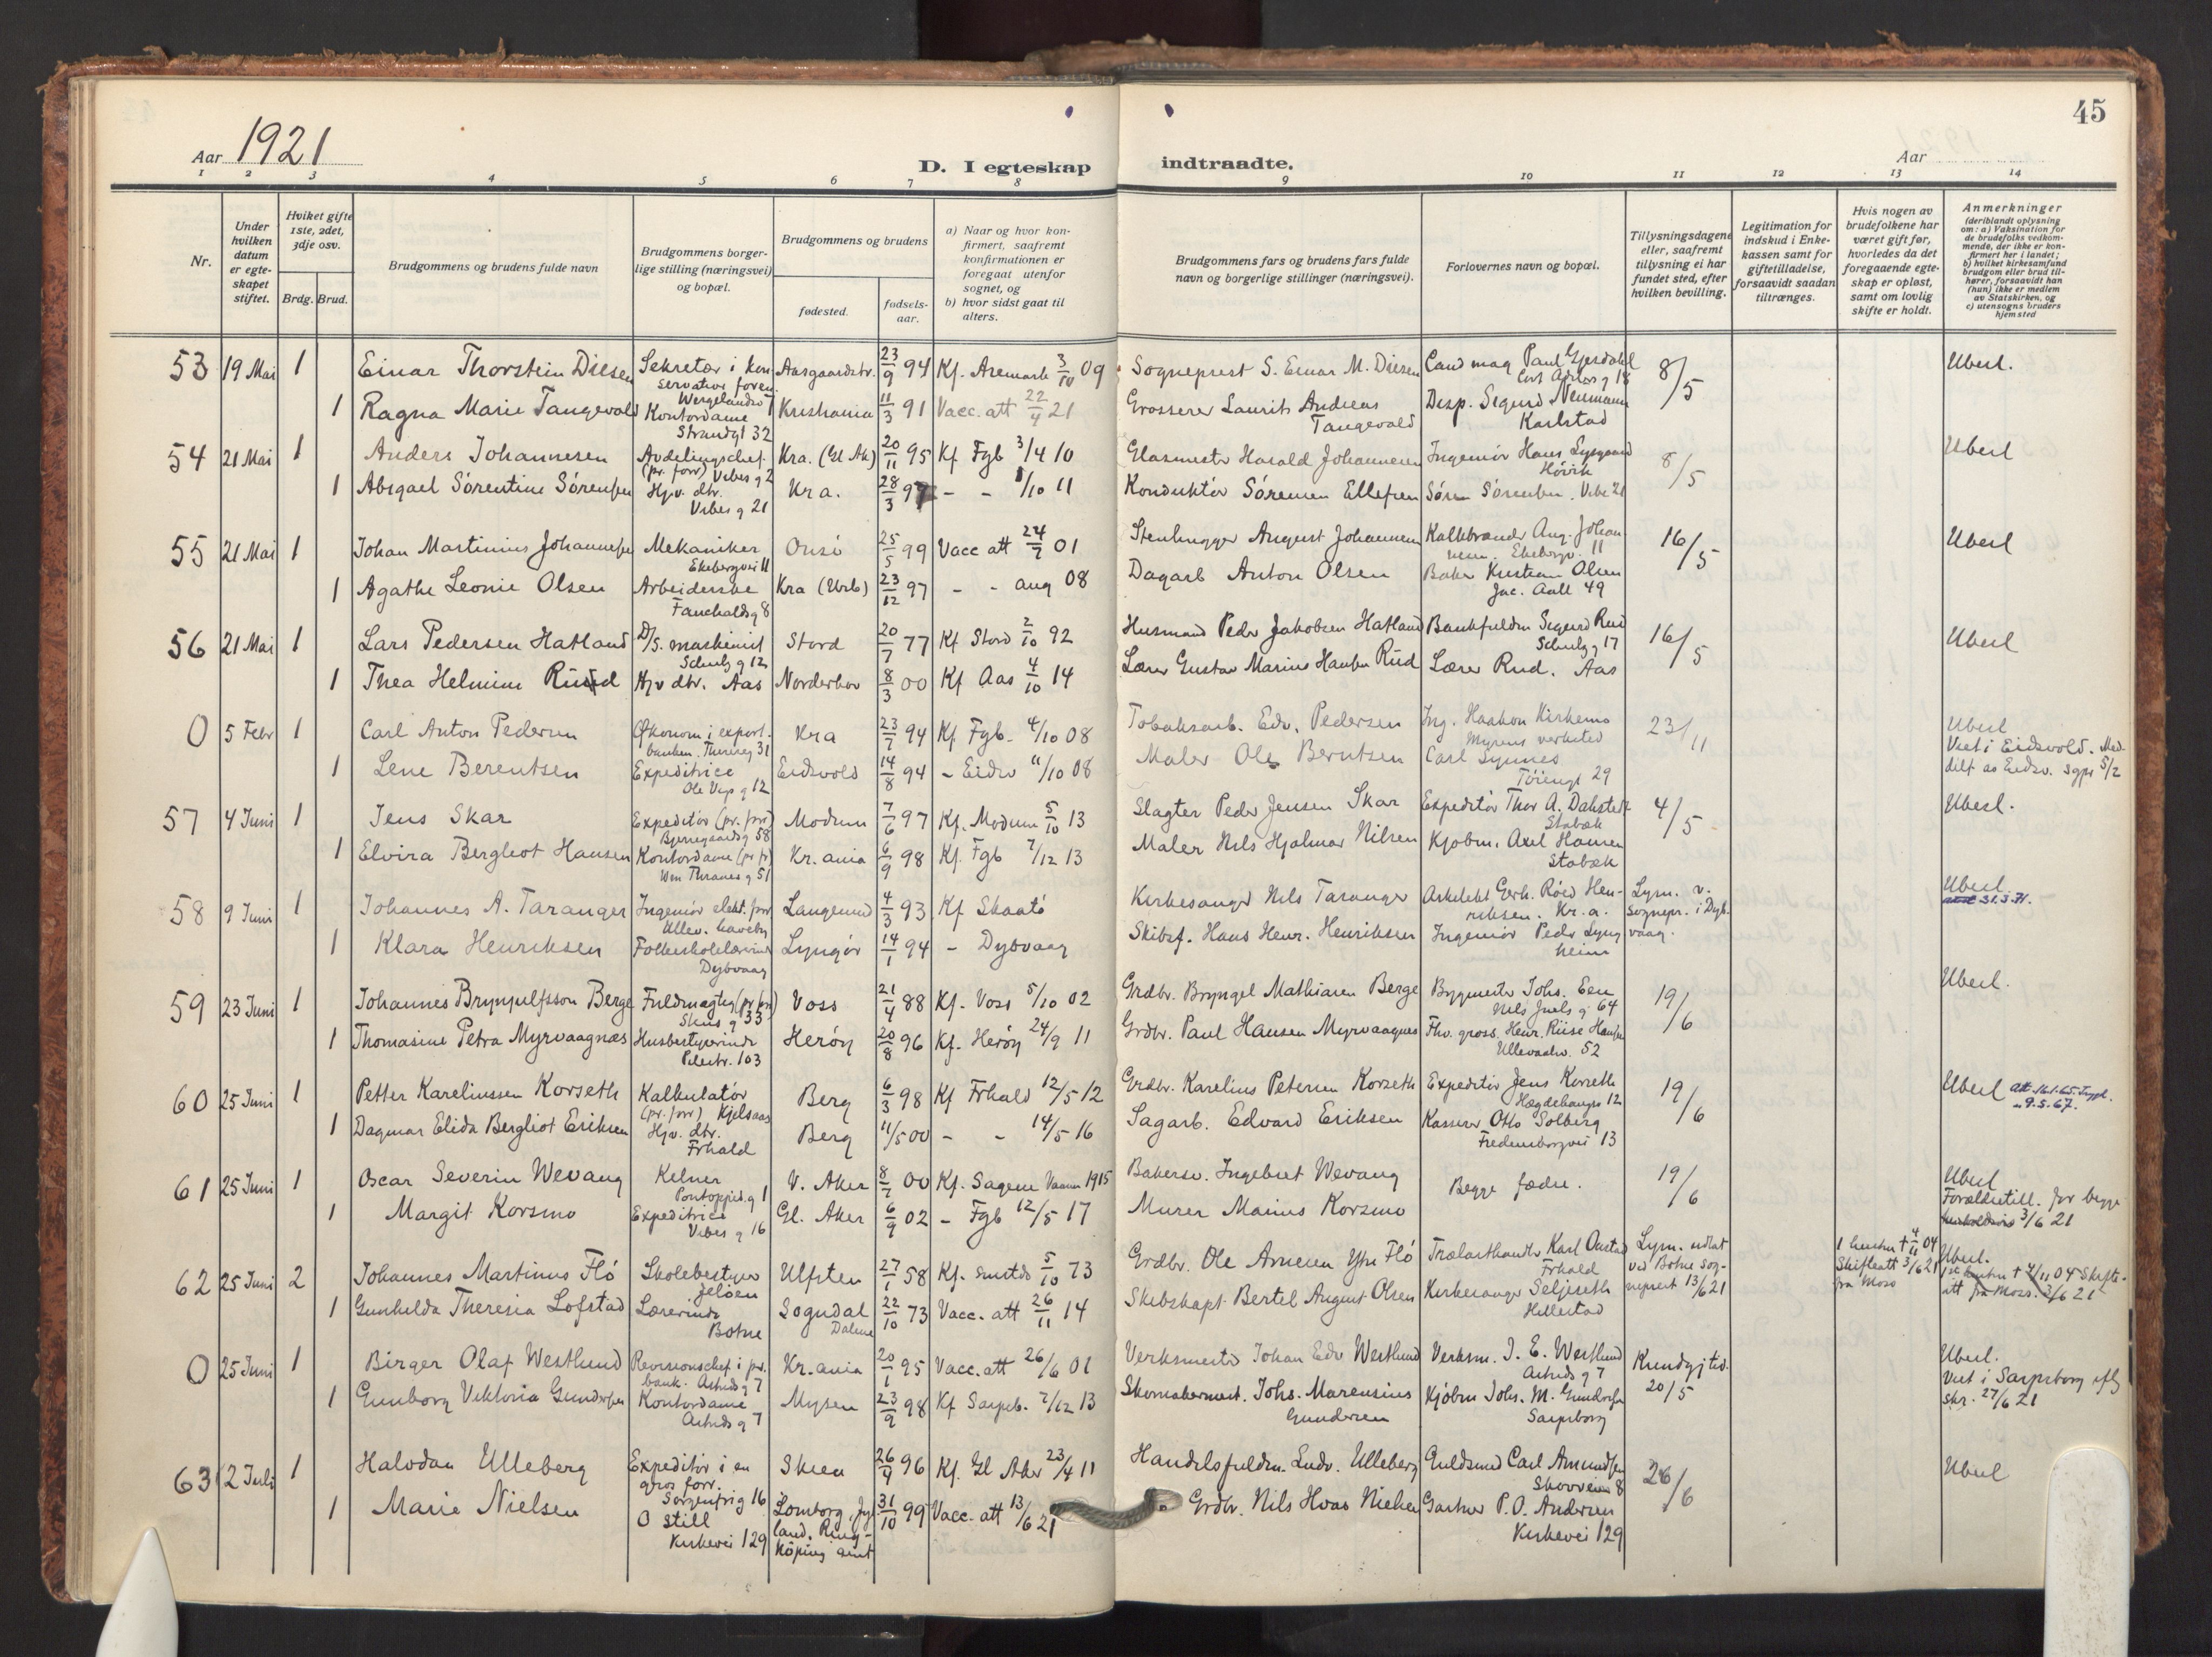 45
Aar 1921
D. I egteskap indtraadte.
Aar
1 2 3 4 5 6 7 8 9 10 11 12 13 14
Nr.
Under hvilken datum er egteskapet stiftet.
Hviket gifte 1ste, 2det, 3dje osv.
Brdg. Brud.
Brudgommens og brudens fulde navn
Brudgommens borgerlige stilling (næringsvei) og bopæl.
Brudgommens og brudens
fødested.
fødselsaar.
a) Naar og hvor konfirmert, saafremt konfirmationen er foregaat utenfor sognet, og
b) hvor sidst gaat til alters.
Brudgommens fars og brudens fars fulde navn og borgerlige stillinger (næringsvei).
Forlovernes navn og bopæl.
Tillysningsdagene eller, saafremt tillysning ei har fundet sted, efter hvilken bevilling.
Legitimation for indskud i Enkekassen samt for giftetilladelse, forsaavidt saadan tiltrænges.
Hvis nogen av brudefolkene har været gift før, hvorledes da det foregaaende egteskap er opløst, samt om lovlig skifte er holdt.
Anmerkninger
(deriblandt oplysning om: a) Vaksination for de brudefolks vedkommende, der ikke er konfirmert her i landet; b) hvilket kirkesamfund brudgom eller brud tilhører, forsaavidt han (hun) ikke er medlem av Statskirken, og c) utensogns bruders hjemsted
53 19 Mai 1 Einar Thorstein Diesen Sekretær i konservative foren. Wergelandsv 7 Aasgaardstr. 23/9 94 Kf. Aremark 3/10 09 Sogneprest S. Einar M. Diesen Cand mag Paul Gjesdahl 8/5 Uberl.
1 Ragna Marie Tangevald Kontordame Strandgt 32 Kristiania 11/3 91 Vacc. att 22/4 21 Grosserer Laurits Andreas Tangevald Disp. Sigurd Neumann Karlstad
54 21 Mai 1 Anders Johannesen Avdelingschef (pr. forr) Vibes g 2 Kra. (Gl Ak) 20/11 95 Kf Fgb 3/4 10 Glasmester Harald Johannesen Ingeniør Hans Lysgaard Høvik 8/5 Uberl
1 Abigael Sørentine Sørensen Hjv. dtr. Vibes g 21 Kra. 28/3 97 - - 1/10 11 Konduktør Sørensen Ellefsen Søren Sørensen. Vibe 21
55 21 Mai 1 Johan Martinius Johannesen Mekaniker Ekebergvei 11 Onsø 25/5 99 Vacc att 24/7 01 Stenhugger August Johannesen Kalkbrænder Aug. Johannesen. Ekebergv. 11 16/5 Uberl
1 Agathe Leonie Olsen Arbeiderske Fauchaldsg 8 Kra (Urb) 23/12 97 - - aug 08 Dagarb Anton Olsen Baker Kristian Olsen Jac. Aall 49
56 21 Mai 1 Lars Pedersen Hatland D/S. maskinist Schultz g 12 Stord 20/7 77 Kf Stord 2/10 92 Husmand Peder Jakobsen Hatland Bankfuldm Sigurd Rud Schultz g 17 16/5 Uberl
1 Thea Helmine Ruud Hjv dtr. Aas Norderhov 8/3 00 Kf Aas 4/10 14 Lærer Gustav Marius Hansen Rud Lærer Rud. Aas
0 5 Febr 1 Carl Anton Pedersen Økonom i export. banken. Theresg 31 Kra 23/7 94 Kf. Fgb. 4/10 08 Tobaksarb. Edv. Pedersen Ing. Haakon Kirkemo Myrens verksted 23/11 Uberl
1 Lene Berentsen Expeditrice Ole Vigs g 12 Eidsvold 14/8 94 - Eidsv 11/10 08 Maler Ole Berntsen Carl Synnes Tøiengt 29 Viet i Eidsvold. Meddelt av Eidsv. sgpr 5/2
57 4 Juni 1 Jens Skar Expeditør (pr. forr) Bjerregaardsg 58 Modum 7/6 97 Kf. Modum 5/10 13 Slagter Peder Jensen Skar Expeditør Thor A. Dahstedt Stabæk 4/5 Uberl.
1 Elvira Bergliot Hansen Kontordame (pr fr) Wm Thranes g 51 Kr.ania 6/9 98 Kf. Fgb 7/12 13 Maler Nils Hjalmar Nilsen Kjøbm. Axel Hansen Stabæk
58 9 Juni 1 Johannes A. Taranger Ingeniør elekt. forr Ullev. haveby Langesund 4/3 93 Kf Skaatø Kirkesanger Nils Taranger Arkitekt Gerh. Røed Henriksen. Kr.a. Lysn. v. sognepr. i Dybvaag. Uberl. 31.3.71.
1 Klara Henriksen Folkeskolelærerinde Dybvaag Lyngør 14/1 94 - Dybvaag Skibsf. Hans Henr. Henriksen Ingeniør Peder Lyngheim
59 23 Juni 1 Johannes Brynjulfsson Berge Fuldmægtig (pr forr) Skius g 33 Voss 21/4 88 Kf. Voss 5/10 02 Grdbr. Bryngel Mathiasen Berge Bygmester Johs. Een Nils Juels g 64 19/6 Uberl.
1 Thomasine Petra Myrvaagnæs Husbestyrerinde Pilestr. 103 Herøy 20/8 96 Kf. Herøy 24/9 11 Grdbr. Paul Hansen Myrvaagnes Fhv. gross. Henr. Riise Hansen Ullevaalsv. 52
60 25 Juni 1 Petter Kareliussen Korseth Kalkulatør (pr. forr) Kjelsaas Berg 6/3 98 Kf Frhald 12/5 12 Grdbr. Karelius Petersen Korseth Expeditør Jens Korseth Hægdehaugsv 12 19/6 Uberl att. 9.5.67.
1 Dagmar Elida Bergliot Eriksen Hjv. dtr. Frhald Berg 11/5 00 - - 14/5 16 Sagarb. Edvard Eriksen Kasserer Otto Solberg Fredensborgvei 13
61 25 Juni 1 Oscar Severin Wevang Kelner Pontoppid. g 1 V. Aker 8/7 00 Kf. Sagene Vaaren 1915 Bakersv. Ingebret Wevang Begge fædre. 19/6 Uberl
1 Margit Korsmo Expeditrice Vibes g 16 Gl. Aker 6/9 02 - Fgb 12/5 17 Murer Marius Korsmo Forældretill. for begge 3/6 21
62 25 Juni 2 Johannes Martinus Flò Skolebestyrer Jeløen Ulfsten 27/1 58 Kf. smstds 5/10 73 Grdbr. Ole Arnesen Ytre Flò Trælasthandler Karl Onstad Frhald Lysn. utlat ved Botne sogneprest 13/6 21 1 hustru † 4/11 04 Skifteatt 3/6 21 fra Moss Uberl. 1ste hustru † 4/11 04 Skifteatt fra Moss. 3/6 21
1 Gunhilda Theresia Lofstad Lærerinde Botne Sogndal Dalene 22/10 73 Vacc. att 26/11 14 Skibskapt. Bertel August Olsen Kirkesanger Seljeseth Hillestad
0 25 Juni 1 Birger Olaf Westlund Revisionschef i pr. bank. Astrids g 7 Kr.ania 20/1 95 Vacc. att 26/6 01 Verksmester Johan Edv Westlund Verksm. J. E. Westlund Astrids g 7 Kundgj tid. 20/5 Uberl.
1 Gunborg Viktoria Gundersen Kontordame Astrids g 7 Mysen 23/9 98 Kf Sarpsb. 7/12 13 Skomakermest. Johs. Marensius Gundersen Kjøbm Johs. M. Gundersen Sarpsborg Viet i Sarpsborg iflg skr. 27/6 21
63 2 Juli 1 Halvdan Ulleberg Expeditør i en gros forr. Sorgenfrig 16 Skien 26/9 96 Kf. Gl Aker 23/4 11 Handelsfuldm. Ludv. Ulleberg Guldsmed Carl Amundsen Skovveien 8 26/6 Uberl
1 Marie Nielsen O still Kirkevei 129 Lomborg, Jylland. Ringkøping amt 31/10 99 Vacc. att 13/6 21 Grdbr. Nils Hvas Nielsen Gartner P. O. Andersen Kirkevei 129